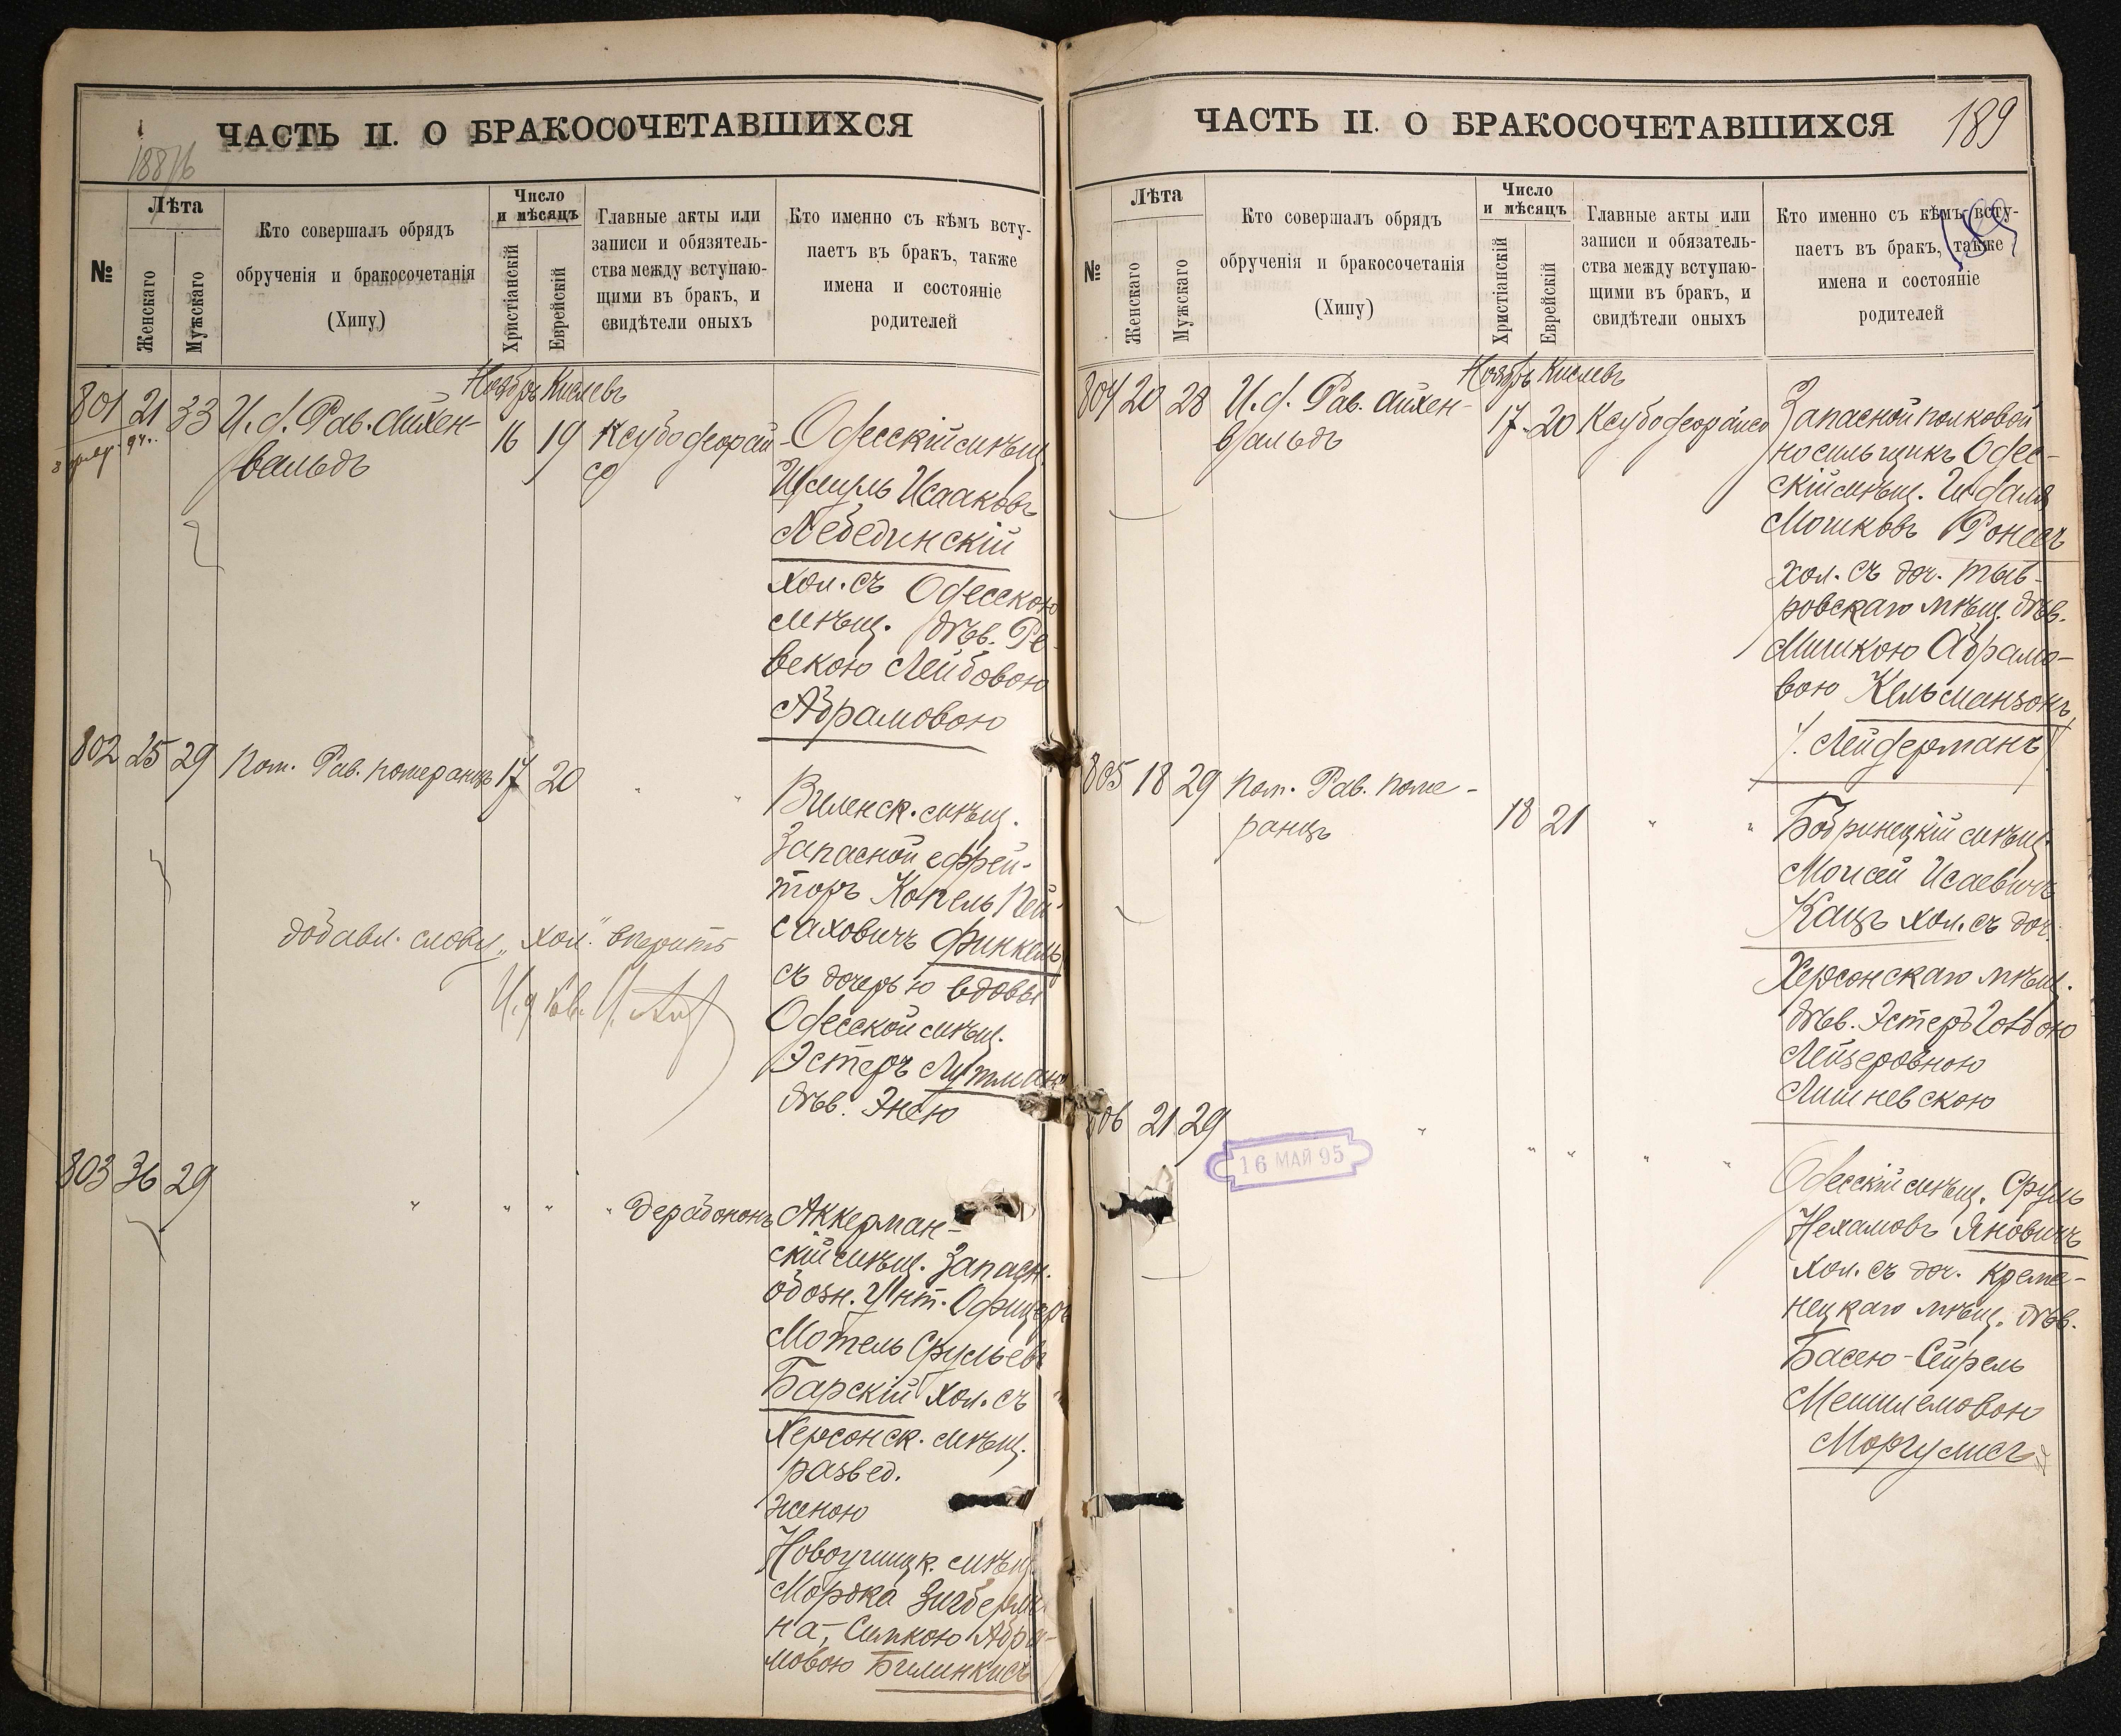 ЧАСТЬ II. О БРАКОСОЧЕТАВШИХСЯ
№
Лѣта
Женскаго
Мужскаго
Кто совершалъ обрядъ
обрученія и бракосочетанія
(Хипу)
Число
и мѣсяцъ
Христіанскій
Еврейскій
Главные акты или
записи и обязятель-
ства между вступаю-
щими въ бракъ, и
свидѣтели оныхъ
Кто именно съ кѣмъ всту-
паетъ въ бракъ, также
имена и состояніе
родителей
Ноябрь Кислевъ
801 21 33 И. д. Рав. Айхен-
вальдъ
16 19
Одесскій мѣщ.
Шмуль Исааковъ
Лебединскій
хол. съ Одесскою
мѣщ. дѣв. Ре-
векою Лейбовою
Абрамовою
802 25 29 Пом. Рав. Померанцъ 17 20 " "
Виленск. мѣщ.
Запасной ефрей-
торъ Копель Пей-
саховичъ Финкель
съ дочерью вдовы
Одесской мѣщ.
Эстеръ Лутман
дѣв. Энею
добавл. слову "хол."
803 36 29 " " " "
Аккерман-
скій мѣщ. Запасн.
обозн. Унт. Офицеръ
Мотель Срульевъ
Барскій хол. съ
Херсонск. мѣщ.
развед.
женою
Новоушицк. мѣщ.
Мордка Зигберма-
на, Симкою Абра-
мовою Билинкисъ
ЧАСТЬ II. О БРАКОСОЧЕТАВШИХСЯ
189
189
№
Лѣта
Женскаго
Мужскаго
Кто совершалъ обрядъ
обрученія и бракосочетанія
(Хипу)
Число
и мѣсяцъ
Христіанскій
Еврейскій
Главные акты или
записи и обязатель-
ства между вступаю-
щими въ бракъ, и
свидѣтели оныхъ
Кто именно съ кѣмъ всту-
паетъ въ бракъ, также
имена и состояніе
родителей
Ноябрь Кислевъ
804 20 28 И. д. Рав. Айхен-
вальдъ
17 20
Запасной полковой
носильщикъ Одес-
скій мѣщ.
Мошковъ Ронесъ
хол. съ доч. Тыв-
ровскаго мѣщ. дѣв.
Минкою Абрамо-
вою Кельманзонъ
/. Лейдерманъ/
805 18 29 Пом. Рав. Поме-
ранцъ
18 21 " "
Бобринецкій мѣщ.
Моисей Исаевичъ
Кацъ хол. съ доч.
Херсонскаго мѣщ.
дѣв. Эстеръ Готдою
Лейзеровною
Лишневскою
806 21 29 " " " " "
16 МАЙ 95
Одесскій мѣщ. Сруль
Нехамовъ Яновичъ
хол. съ доч. Креме-
нецкаго мѣщ. дѣв.
Басею-Сейрель
Мешилемовою
Моргулисъ